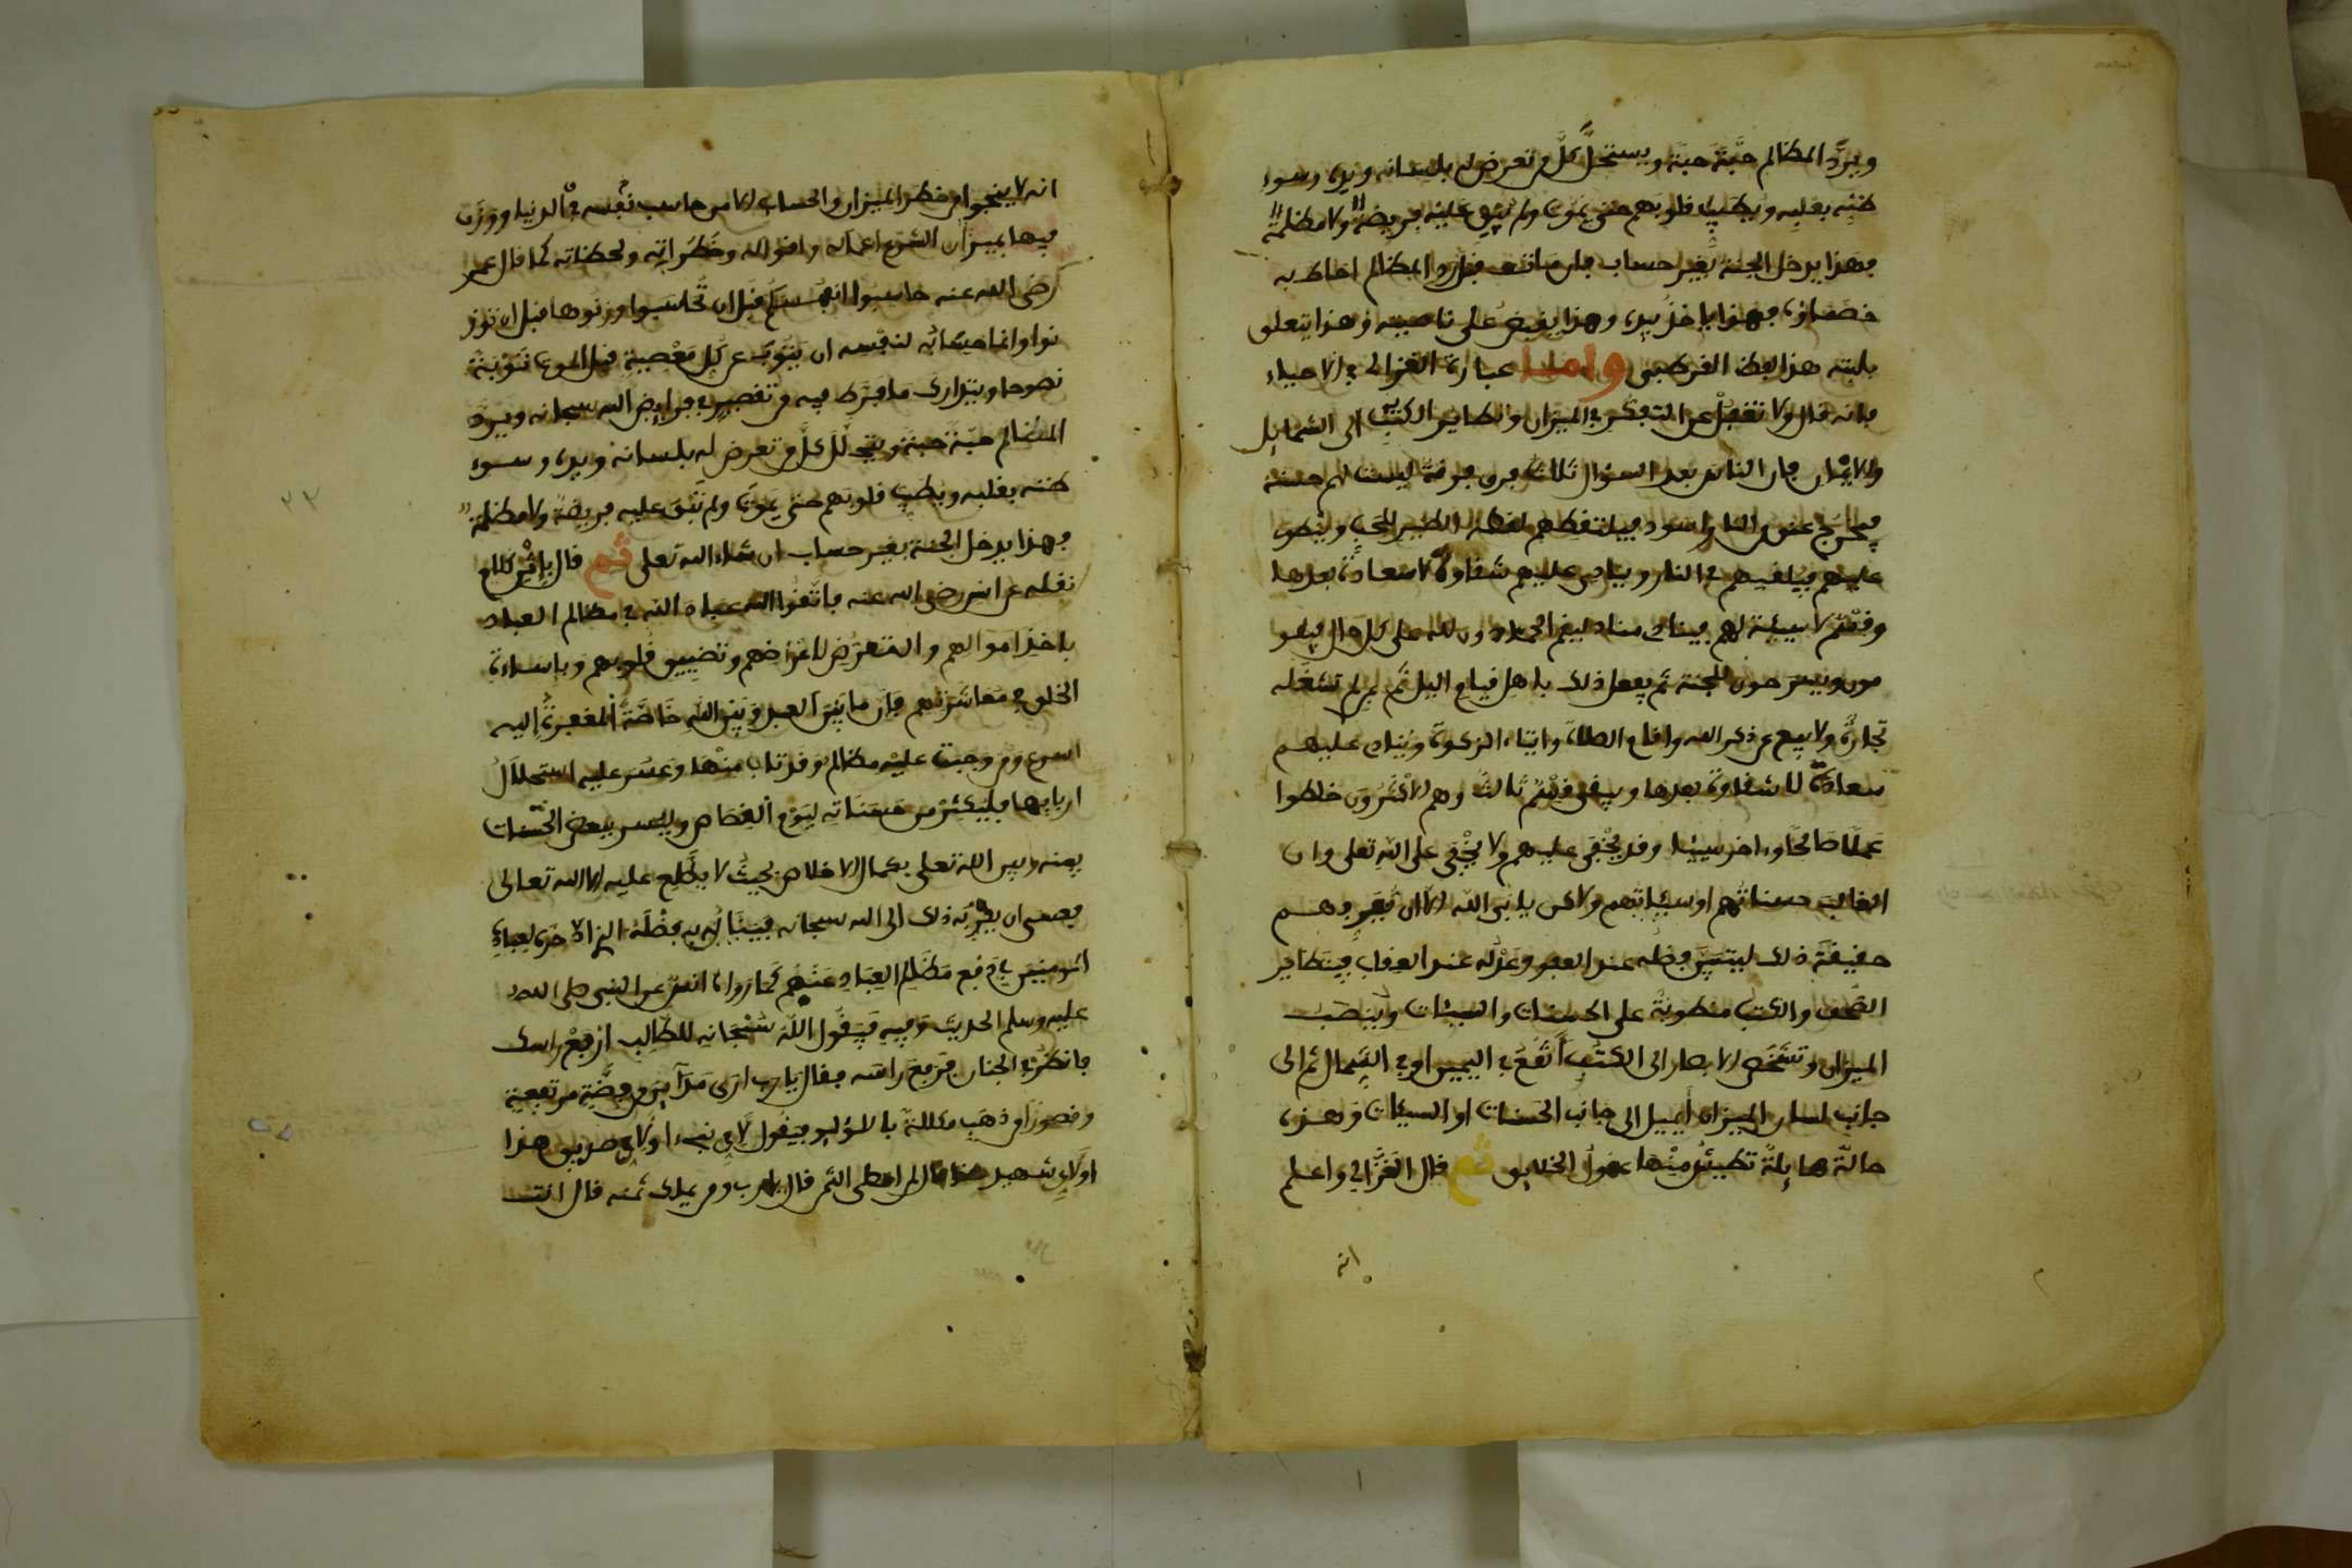 ويرد المظالم حبة حبة ويستحل كل من تعرض له بلسانه ويده وسوء
ظنه بقلبه ويطيب قلوبهم حتى يموت ولم تبق عليه فريضة ولا مظلمة
فهذا يدخل الجنة بغير حساب فان مات قبل رد المظالم احاط به
خصماؤه فهذا ياخذ بيده وهذا يقبض على ناصيته وهذا يتعلق
بلبته هذا لفظ القرطبي واما عبارة الغزالي في الاحياء
فانه قال ولا تغفل عن التفكر في الميزان وتطاير الكتب الى الشمايل
والايمان فان الناس بعد السؤال ثلاث فرق فرقة ليست لهم حسنة
فيخرج عنق من النار اسود فيلتقطهم لقط الطير للحب وينطوي
عليهم فيلقيهم في النار وينادى عليهم شقاوة لا سعادة بعدها
وقسم لا سيئة لهم فينادي مناد ليقم الحمادون لله على كل حال فيقو
مون ويسرحون للجنة ثم يفعل ذلك باهل قيام اليل ثم لمن لم تشغله
تجارة ولا بيع عن ذكر الله واقام الصلاة وايتاء الزكوة وينادى عليهم
سعادة لا شقاوة بعدها ويبقى قسم ثالث وهم الاكثرون خلطوا
عملا صالحا وءاخر سيئا وقد يخفى عليهم ولا يخفى على الله تعلى وان
الغالب حسناتهم او سيئاتهم ولاكن يابى الله الا ان يعرفهم
حقيقة ذلك ليتبين فضله عند العفو وعدله عند العقاب فيتطاير
الصحف والكتب منطوية على الحسنات والسيئات وينصب
الميزان وتشخص الابصار الى الكتب أتقع في اليمين او في الشمال ثم الى
جانب لسان الميزان أيميل الى جانب الحسنات او السيئات وهذه
حالة هايلة تطيش منها عقول الخلايق ثم قال الغزالي واعلم
انه
انه لا ينجوا من خطر الميزان والحساب الا من حاسب نفسه في الدنيا ووزن
فيها بميزان الشرع اعماله واقواله وخطراته ولحظاته كما قال عمر
رضى الله عنه حاسبوا انفسكم قبل ان تحاسبوا وزنوها قبل ان توز
نوا وانما حسابه لنفسه ان يتوب عن كل معصية قبل الموت توبة
نصوحا ويتدارك ما فرط فيه من تقصيره في فرايض الله سبحانه ويرد
المظالم حبة حبة ويتحلل كل من تعرض له بلسانه ويده وسوء
ظنه بقلبه ويطيب قلوبهم حتى يموت ولم تبق عليه فريضة ولا مظلمة
فهذا يدخل الجنة بغير حساب ان شاء الله تعلى ثم قال باثر كلام
نقله عن انس رضى الله عنه فاتقوا الله عباد الله في مظالم العباد
باخذ اموالهم والتعرض لاعراضهم وتضييق قلوبهم وباساءة
الخلق في معاشرتهم فان ما بين العبد وبين الله خاصة المغفرة اليه
اسرع ومن وجبت عليه مظالم وقد تاب منها وعسر عليه استحلال
اربابها فليكثر من حسناته ليوم القصاص وليسر ببعض الحسنات
بينه وبين الله تعلى بكمال الاخلاص بحيث لا يطلع عليه الا الله تعالى
فعسى ان يقربه ذلك الى الله سبحانه فينال به فضله الذي ادخره لعباده
المومنين في دفع مظالم العباد عنهم كما روى انس عن النبي صلى الله
عليه وسلم الحديث وفيه فيقول الله سبحانه للطالب ارفع راسك
فانظر في الجنان فرفع راسه فقال يا رب ارى مداين من فضة مرتفعة
وقصورا من ذهب مكللة باللؤلؤ فيقول لاي نبيء او لاي صديق هذا
او لاي شهيد هذا قال لمن اعطى الثمن قال يا رب ومن يملك ثمنه قال انت